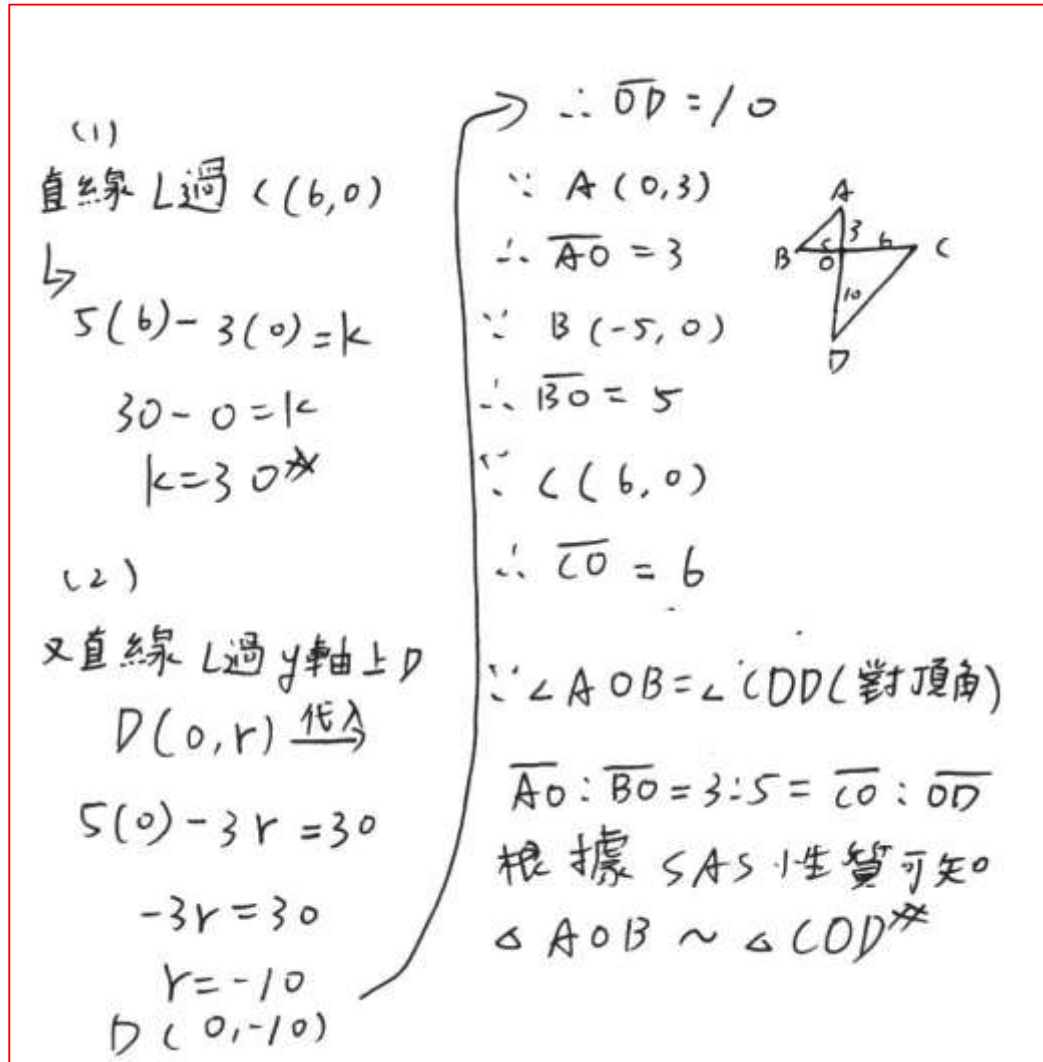 (1)
直線 L過 C(6,0)
↳
5(6)-3(0)=k
30-0=k
k=30
(2)
又直線 L過 y軸上D
D(0,r) 代入→
5(0)-3r=30
-3r=30
r=-10
D(0,-10)
∴ OD=10
∵ A(0,3)
∴ AO=3
∵ B(-5,0)
∴ BO=5
∵ C(6,0)
∴ CO=6
∵∠AOB=∠COD(對頂角)
AO:BO=3:5=CO:OD
根據 SAS 性質可知。
△AOB~△COD
A
3
B 5 6 C
O
10
D